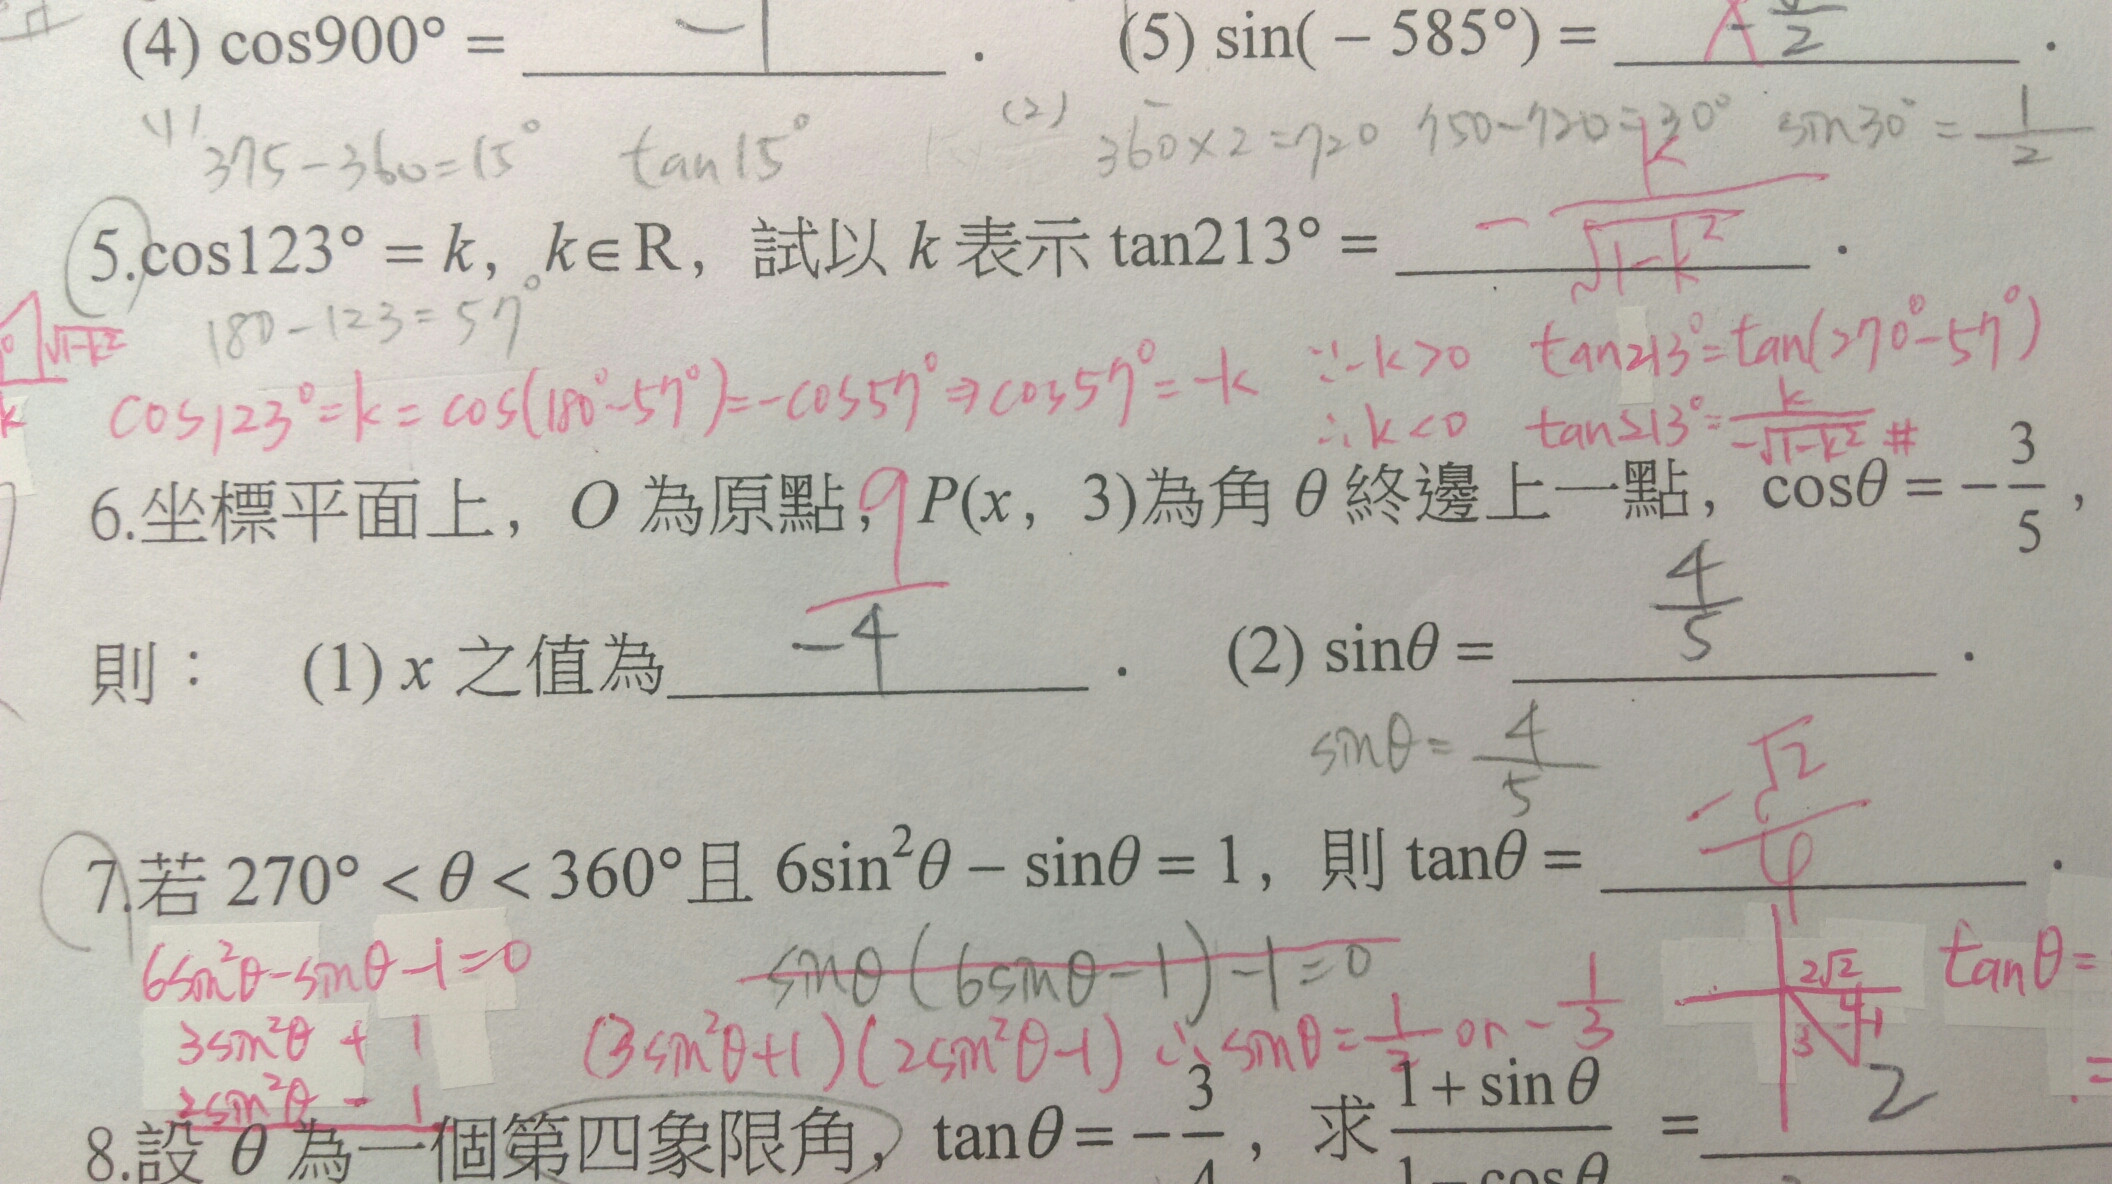 (4) cos900° = -1 . (5) sin( − 585°) = 2 .
(1) 375-360=15° tan15° (2) 360×2=720 750-720=30° sin30°=1/2
5.cos123° = k, k∈R, 試以 k 表示 tan213° = -k/√1-k² .
180-123=57°
√1-k²
k
cos123°=k=cos(180°-57°)=-cos57°⇒cos57°=-k ∵-k>0 tan213°=tan(270°-57°)
∴k<0 tan213°=k/-√1-k² #
6.坐標平面上, O 為原點, P(x, 3)為角 θ 終邊上一點, cosθ = −3/5,
則: (1) x 之值為 9/-4 . (2) sinθ = 4/5 .
sinθ=4/5
7.若 270° < θ < 360°且 6sin²θ − sinθ = 1, 則 tanθ = -√2/4 .
6sin²θ-sinθ-1=0 sinθ(6sinθ-1)-1=0
3sin²θ + 1 (3sin²θ+1)(2sin²θ-1) ∴sinθ=1/2 or -1/3
2sin²θ - 1
2√2 -1 3 tanθ=
8.設 θ 為一個第四象限角, tanθ = −3/4, 求 1 + sinθ/1 − cosθ = 2